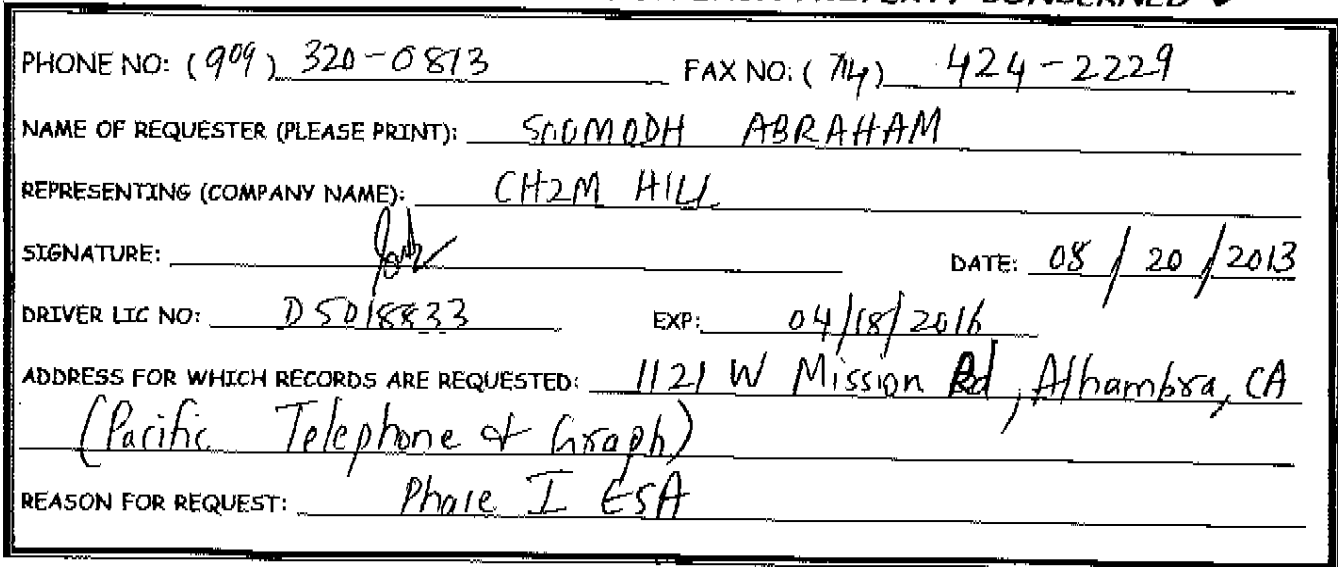 CONCERNED
PHONE NO: (909) 320-0873 FAX NO: (714) 424-2229
NAME OF REQUESTER (PLEASE PRINT): ABRAHAM
REPRESENTING (COMPANY NAME): CH2M HILL
SIGNATURE: DATE: 08/20/2013
DRIVER LIC NO: D5018833 EXP: 04/18/2016
ADDRESS FOR WHICH RECORDS ARE REQUESTED: 1121 W Mission Rd, Alhambra, CA
(Pacific Telephone & Graph)
REASON FOR REQUEST: Phase I ESA